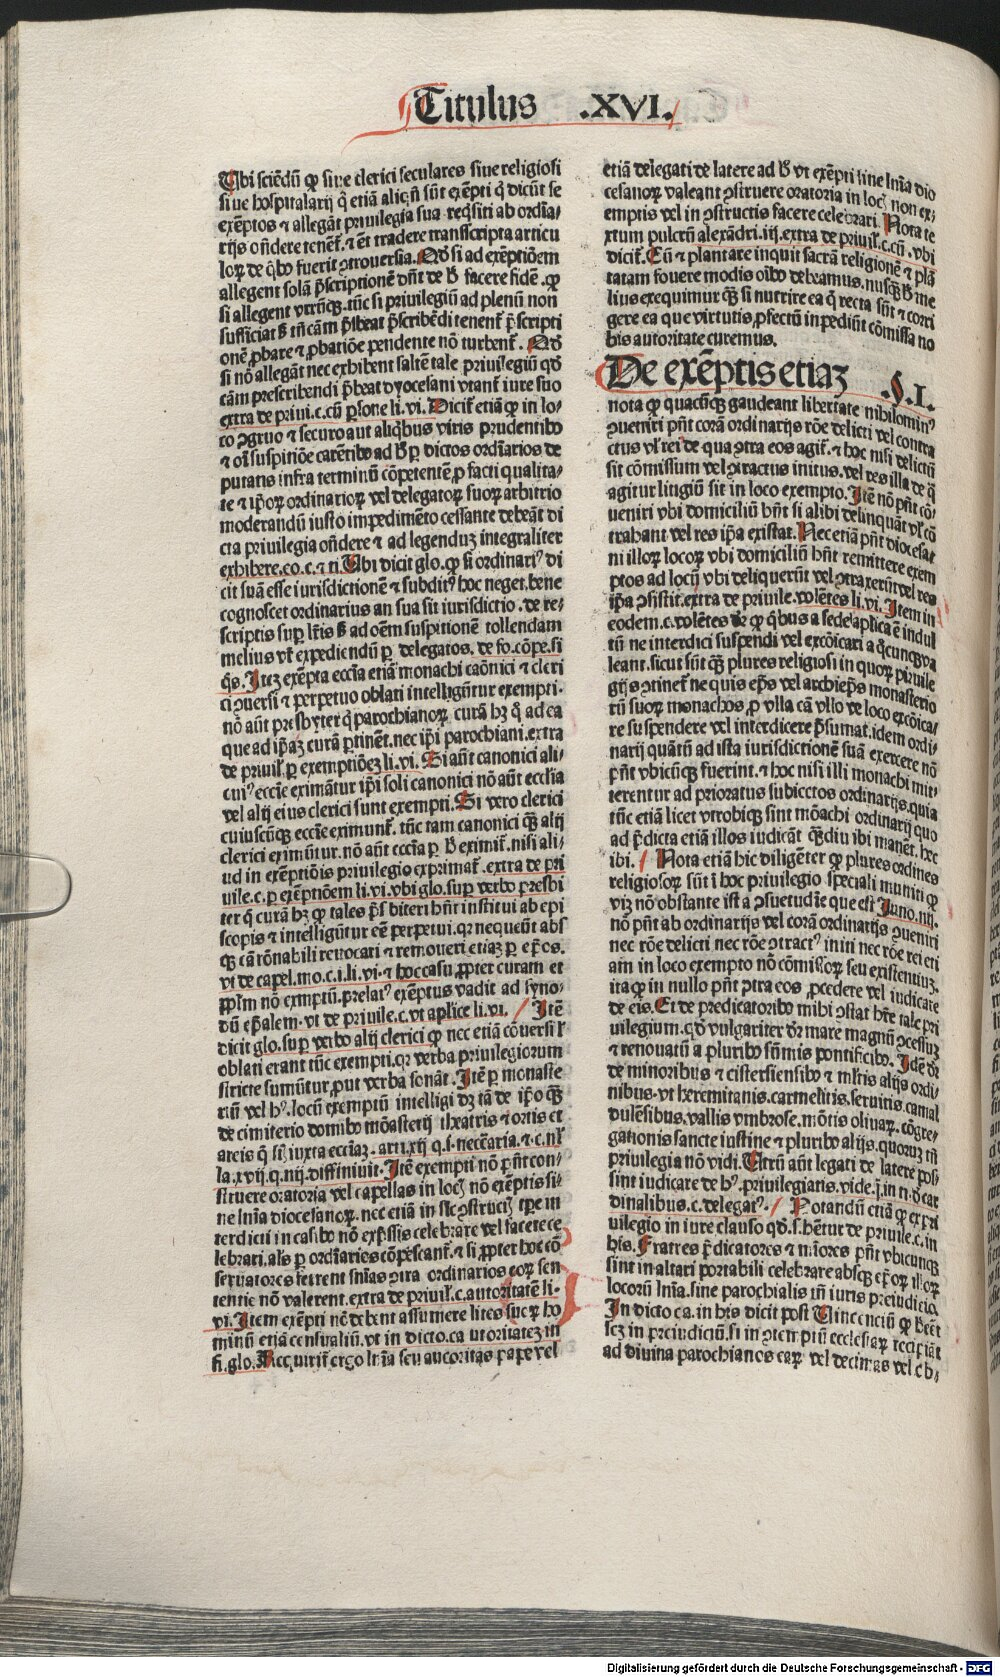 Titulus .XVI.
Vbi sciẽdũ ꝙ siue clerici seculares siue religiosi
siue hospitalarij q̃ etiã aliqñ sũt exẽpti q̃ dicũt se
exẽptos ⁊ allegãt priuilegia sua reqͥsiti ab ordĩa-
rijs oñdere tenent̃ .⁊ ẽt tradere transscripta articu
loꝝ de qͥbo fuerit ꝯtrouersia. Qđ si ad exẽptiõem
allegent solã p̃scriptionẽ dñt de B facere fidẽ. ꝙ
si allegent vtrũqꝫ. tũc si priuilegiũ ad plenũ non
sufficiat B tñ cãm p̃beat p̃scribẽdi tenent̃ p̃scripti
onẽ ꝓbare ⁊ ꝓbatiõe pendente nõ turbent̃. Qđ
si nõ allegãt nec exhibent saltẽ tale priuilegiũ qđ
cãm prescribendi p̃beat dyocesani vtant̃ iure suo
extra de priui.c.cũ ꝑsone li.vi. Dicit̃ etiã ꝙ in lo-
co ꝯgruo ⁊ securo aut aliqͥbus viris prudentibo
⁊ oĩ suspitiõe carẽtibo ad B ꝑ dictos ordĩarios de
putatis infra terminũ cõpetentẽ ꝓ facti qualita-
te ⁊ ip̃oꝝ ordinarioꝝ vel delegatoꝝ suoꝝ arbitrio
moderandũ iusto impedimẽto cessante debeãt di
cta priuilegia oñdere ⁊ ad legenduꝫ integraliter
exhibere.eo.c.⁊ ti. Vbi dicit glo. ꝙ si ordinariꝰ di
cit suã esse iurisdictionẽ ⁊ subditꝰ hoc neget. bene
cognoscet ordinarius an sua sit iurisdictio . de re-
scriptis sup lr̃is B ad oẽm suspitionẽ tollendam
melius vr̃ expediendũ ꝑ delegatos. de fo.cõpe.si
qͥs. Ituꝫ exẽpta eccĩa etiã monachi caõnici ⁊ cleri
ci ꝯuersi ⁊ perpetuo oblati intelligũtur exempti.
nõ aũt presbyter q̃ parochianoꝝ curã hꝫ q̃ ad ea
que ad ip̃aꝫ curã ꝑtinẽt. nec ip̃i parochiani. extra
de priuil̃.ꝑ exemptiõeꝫ li.vi. Si aũt canonici ali-
cuiꝰ eccĩe eximãtur ip̃i soli canonici nõ aũt eccl̃ia
vel alij eius clerici sunt exempti. Si vero clerici
cuiuscũqꝫ eccĩe eximunt̃. tũc tam canonici qꝫ alij
clerici eximũtur. nõ aũt eccĩa ꝑ B eximit̃. nisi ali-
ud in exẽptiõis priuilegio exprimat̃ . extra de pri
uile.c.ꝑ exẽptiõem li.vi. vbi glo. suꝑ verbo presbi
ter q̃ curã hꝫ ꝙ tales p̃sbiteri hñt institui ab epi
scopis ⁊ intelligũtur eẽ perpetui.qꝛ nequeũt abs
qꝫ cã rõnabili reuocari ⁊ remoueri etiaꝫ ꝑ ep̃os.
vt de capel.mo.c.i.li.vi.⁊ hoc casu ꝓpter curam et
ppl̃m nõ exmptũ. prelatꝰ exẽptus vadit ad syno-
dũ ep̃alem. vt de priuile.c. vt apl̃ice li.vi. Itẽ
dicit glo. sup verbo alij clerici ꝙ nec etiã cõuersi ł
oblati erant tũc exempti.qꝛ verba priuilegiorum
stricte sumũtur ꝓut verba sonãt. Itẽ ꝑ monaste
riũ vel hꝰ. locũ exemptũ intelligi dꝫ tã de ip̃o qꝫ
de cimiterio domibo mõasterij theatris ⁊ ortis et
areis q̃ sũt iuxta eccĩaꝫ. arti.xij q.i. necr̃aria.⁊.c.nł
la.xvij.q.iiij. diffiniuit. Itẽ exempti nõ pñt con-
stituere oratoria vel capellas in locꝫ nõ exẽptis si-
ne lnĩa diocesanoꝝ. nec etiã in sic ꝯstructꝫ tꝑe in
terdicti in casibo nõ exp̃ssis celebrare vel facere ce
lebrari. al̃s ꝑ ordĩarios cõpescant̃. ⁊ si ꝓpter hoc cõ
seruatores ferrent snĩas ꝯtra ordinarios eoꝝ sen
tentie nõ valerent. extra de priuil.c. autoritatẽ li.
vi. Item exẽpti nẽ debent assumere lites suoꝝ ho
minũ etiã censualiũ. vt in dicto.ca utoritateꝫ in
fi.glo. Acqͥuirit̃ ergo lnĩa seu auctoritas pape vel
etiã delegati de latere ad B vt exẽpti sine lnĩa dio
cesanoꝝ valeant ꝯstruere oratoria in locꝫ non ex-
emptis vel in ꝯstructis facere celebrari. Nota te
xtum pulcrũ alexãdri.iij. extra de priuil̃.c.cũ. vbi
dicit̃. Cũ ⁊ plantare inquit sacrã religionẽ ⁊ plã
tatam fouere modis oĩbo debeamus. nusqꝫ B me
lius exequimur qꝫ si nutrire ea q̃ recta sũt ⁊ corri
gere ea que virtutis ꝓfectũ inpediũt cõmissa no
bis autoritate curemus.
De exẽptis etiaꝫ §.I.
nota ꝙ quacũqꝫ gaudeant libertate nihilominꝰ
ꝯueniri pñt corã ordinarijs rõe delicti vel contra
ctus vl̃ rei de qua ꝯtra eos agit̃. ⁊ hoc nisi delictũ
sit cõmissum vel ꝯtractus initus. vel res illa de q̃
agitur litigiũ sit in loco exempto. Itẽ nõ pñt cõ-
ueniri vbi domiciliũ hñt si alibi delinquãt vl̃ cõ
trahant vel res ip̃a existat. Nec etiã pñt diocesa
ni illoꝝ locoꝝ vbi domiciliũ hñt remittere exem
ptos ad locũ vbi deliquerũt vel ꝯtraxerũt vel res
ip̃a ꝯsistit. extra de priuile. volẽtes li.vi. Item in
eodem.c. volẽtes dr̃ ꝙ qͥbus a sede aplica ẽ indul
tũ ne interdici suspendi vel excõicari a q̃cunqꝫ va
leant. sicut sũt qꝫ plures religiosi in quoꝝ priuile
gijs ꝯtinet̃ ne quis ep̃s vel archiep̃s monasterio
rũ suoꝝ monachos ꝓ vlla cã vllo ve loco excõica-
re suspendere vel interdicere p̃sumat. idem ordi-
narij quãtũ ad ista iurisdictionẽ suã exercere nõ
pñt vbicũqꝫ fuerint. ⁊ hoc nisi illi monachi mit-
terentur ad prioratus subiectos ordinarijs. quia
tũc etiã licet vtrobiqꝫ sint mõachi ordinarij quo
ad p̃dicta etiã illos iudicãt qꝫdiu ibi manẽt. hec
ibi. Nota etiã hic diligẽter ꝙ plures ordines
religiosoꝝ sũt ĩ hoc priuilegio speciali muniti ꝙ
viꝫ nõ obstante ista ꝯsuetudĩe que est Inno.iiij.
nõ pñt ab ordinarijs vel corã ordinarijs ꝯueniri
nec rõe delicti nec rõe ꝯtractꝰ initi nec rõe rei eti
am in loco exempto nõ cõmissoꝝ seu existentiuꝫ.
ita ꝙ in nullo pñt ꝯtra eos ꝓcedere vel iudicare
de eis. Et de predicatoribo mihi ꝯstat hr̃e tale pri
uilegium. qđ vulgariter dr̃ mare magnũ ꝯcessuꝫ
⁊ renouatũ a pluribo sũmis pontificibo. Idẽ dr̃
de minoribus ⁊ cistersiensibo ⁊ ml̃tis alijs ordi-
nibus. vt heremitanis. carmelitis. seruitis. camal
dulẽsibus. vallis vmbrose. mõtis oliuaꝝ. cõgre-
gationis sancte iustine ⁊ pluribo alijs. quoruꝫ tñ
priuilegia nõ vidi. Vtrũ aũt legati de latere pos-
sint iudicare de hꝰ. priuilegiatis. vide.j. in ti. ð car
dinalibus.c. delegatꝰ. Notandũ etiã ꝙ ex pri
uilegio in iure clauso qđ.s. hẽtur de priuile.c. in
his. Fratres p̃dicatores ⁊ mĩores pñt vbicunqꝫ
sint in altari portabili celebrare absqꝫ ep̃oꝝ illoꝝ
locorũ lnĩa. sine parochialis tñ iuris preiudicio.
In dicto ca. in his dicit post Vincenciũ ꝙ hẽet
lcꝫ in preiudiciũ. si in ꝯtemptũ ecclesiaꝝ recipiãt
ad diuina parochianos eaꝝ vel decimas vel ob-
Digitalisierung gefördert durch die Deutsche Forschungsgemeinschaft - DFG